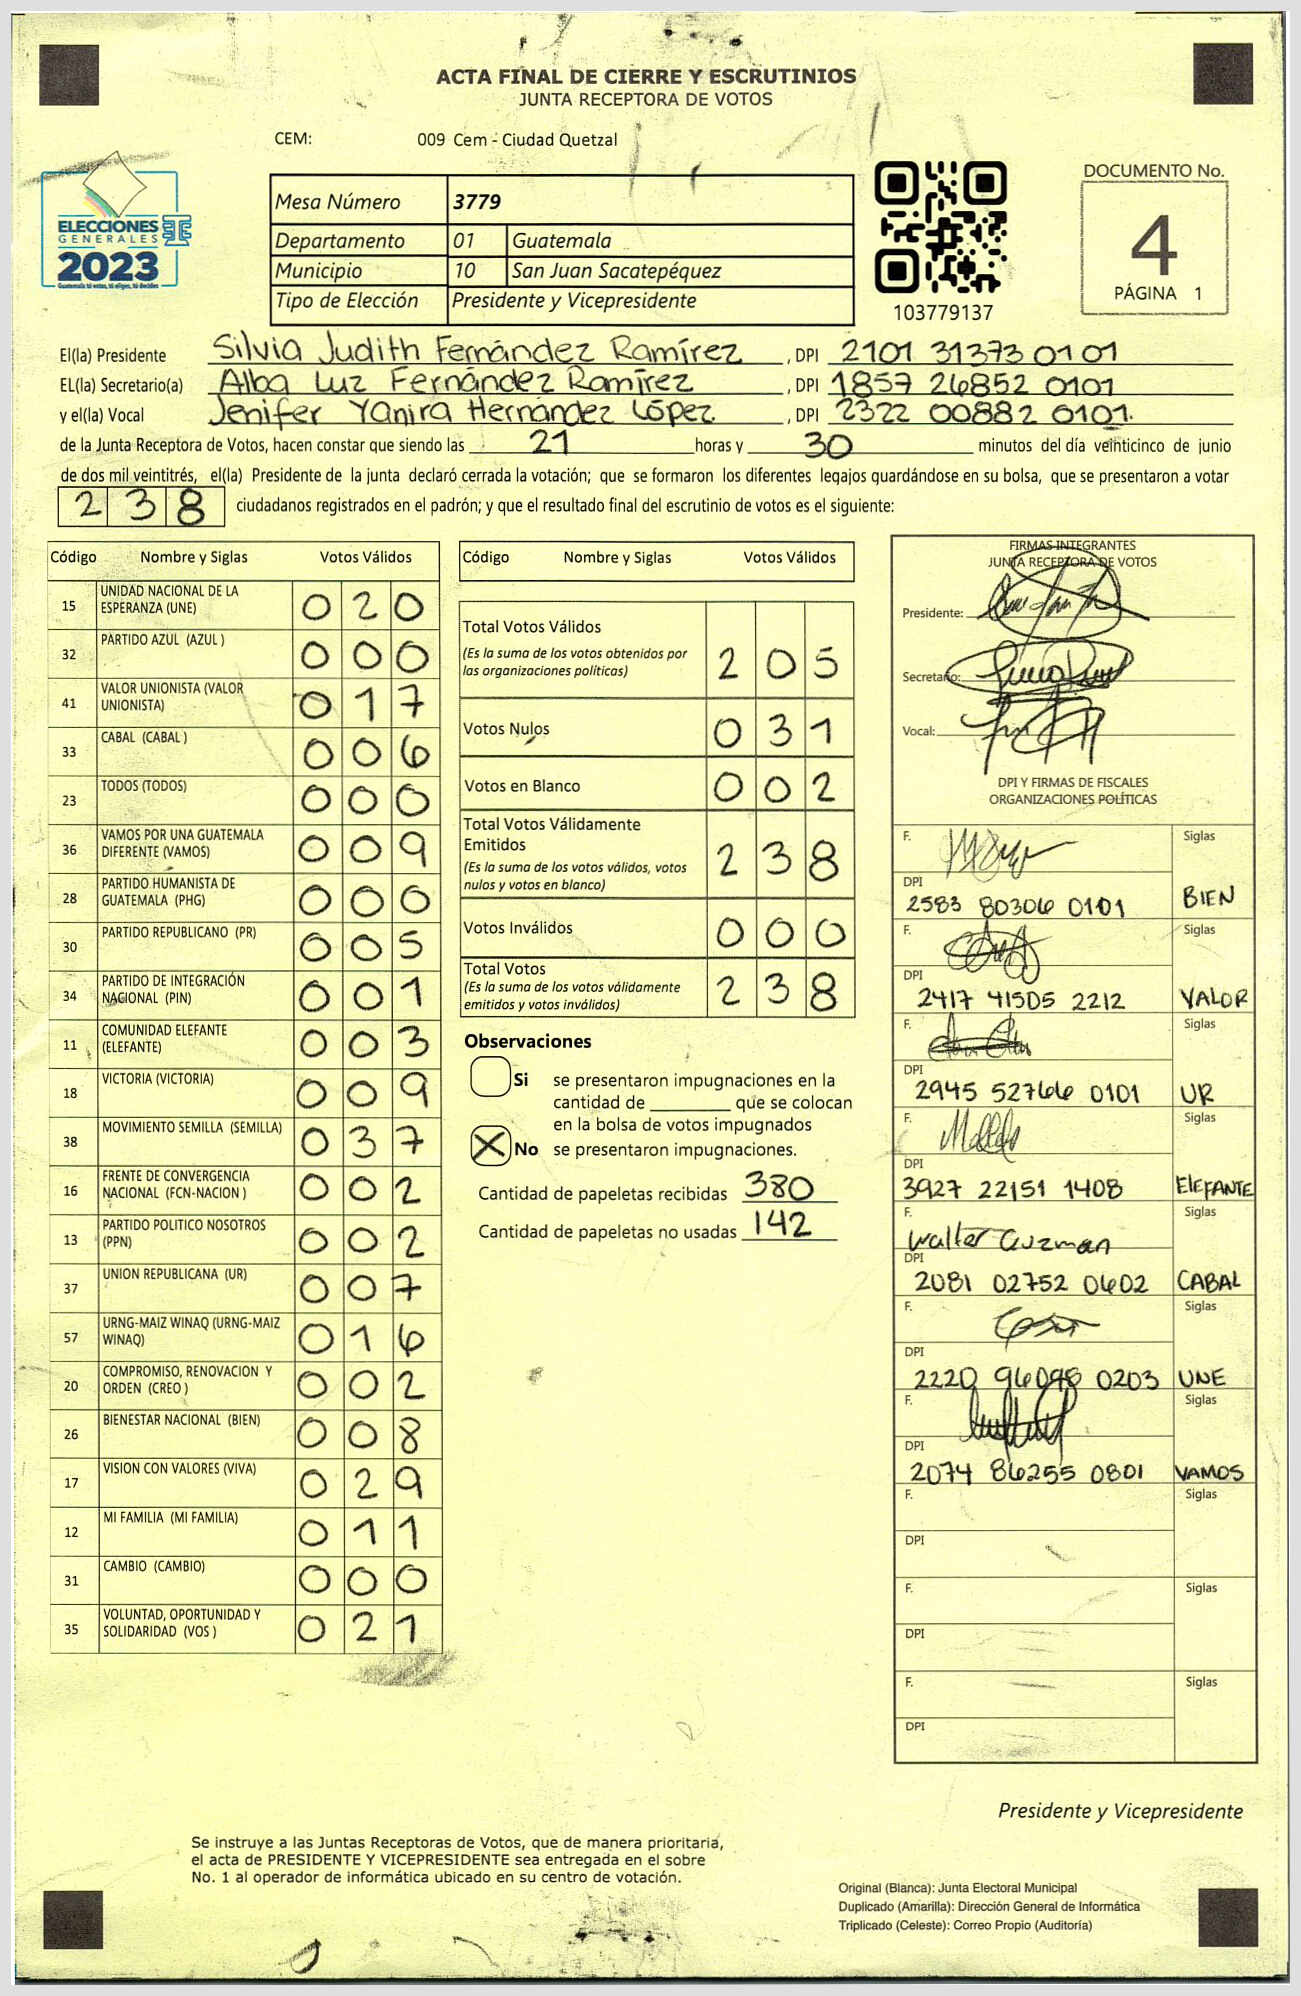 ACTA FINAL DE CIERRE Y ESCRUTINIOS
JUNTA RECEPTORA DE VOTOS
CEM: 009 Cem - Ciudad Quetzal
ELECCIONES
GENERALES
2023
Guatemala tú votas, tú eliges, tú decides
Mesa Número 3779
Departamento 01 Guatemala
Municipio 10 San Juan Sacatepéquez
Tipo de Elección Presidente y Vicepresidente
103779137
DOCUMENTO No.
4
PÁGINA 1
El(la) Presidente Silvia Judith Fernández Ramírez , DPI 2101 31373 0101
EL(la) Secretario(a) Alba Luz Fernández Ramírez , DPI 1857 26852 0101
y el(la) Vocal Jenifer Yanira Hernández López , DPI 2322 00882 0101.
de la Junta Receptora de Votos, hacen constar que siendo las 21 horas y 30 minutos del día veinticinco de junio
de dos mil veintitrés, el(la) Presidente de la junta declaró cerrada la votación; que se formaron los diferentes legajos guardándose en su bolsa, que se presentaron a votar
238 ciudadanos registrados en el padrón; y que el resultado final del escrutinio de votos es el siguiente:
Código Nombre y Siglas Votos Válidos
15 UNIDAD NACIONAL DE LA ESPERANZA (UNE) 020
32 PARTIDO AZUL (AZUL ) 000
41 VALOR UNIONISTA (VALOR UNIONISTA) 017
33 CABAL (CABAL ) 006
23 TODOS (TODOS) 000
36 VAMOS POR UNA GUATEMALA DIFERENTE (VAMOS) 009
28 PARTIDO HUMANISTA DE GUATEMALA (PHG) 000
30 PARTIDO REPUBLICANO (PR) 005
34 PARTIDO DE INTEGRACIÓN NACIONAL (PIN) 001
11 COMUNIDAD ELEFANTE (ELEFANTE) 003
18 VICTORIA (VICTORIA) 009
38 MOVIMIENTO SEMILLA (SEMILLA) 037
16 FRENTE DE CONVERGENCIA NACIONAL (FCN-NACION ) 002
13 PARTIDO POLITICO NOSOTROS (PPN) 002
37 UNION REPUBLICANA (UR) 007
57 URNG-MAIZ WINAQ (URNG-MAIZ WINAQ) 016
20 COMPROMISO, RENOVACION Y ORDEN (CREO ) 002
26 BIENESTAR NACIONAL (BIEN) 008
17 VISION CON VALORES (VIVA) 029
12 MI FAMILIA (MI FAMILIA) 011
31 CAMBIO (CAMBIO) 000
35 VOLUNTAD, OPORTUNIDAD Y SOLIDARIDAD (VOS ) 021
Código Nombre y Siglas Votos Válidos
Total Votos Válidos 205
(Es la suma de los votos obtenidos por
las organizaciones políticas)
Votos Nulos 031
Votos en Blanco 002
Total Votos Válidamente
Emitidos 238
(Es la suma de los votos válidos, votos
nulos y votos en blanco)
Votos Inválidos 000
Total Votos 238
(Es la suma de los votos válidamente
emitidos y votos inválidos)
Observaciones
Si se presentaron impugnaciones en la
cantidad de ________ que se colocan
en la bolsa de votos impugnados
X No se presentaron impugnaciones.
Cantidad de papeletas recibidas 380
Cantidad de papeletas no usadas 142
FIRMAS INTEGRANTES
JUNTA RECEPTORA DE VOTOS
Presidente:
Secretario:
Vocal:
DPI Y FIRMAS DE FISCALES
ORGANIZACIONES POLÍTICAS
F. Siglas
DPI 2583 80306 0101 BIEN
F. Siglas
DPI 2417 41505 2212 VALOR
F. Siglas
DPI 2945 52766 0101 UR
F. Siglas
DPI 3927 22151 1408 ElEFANTE
F. Walter Guzman Siglas
DPI 2081 02752 0602 CABAL
F. Siglas
DPI 2220 96098 0203 UNE
F. Siglas
DPI 2074 86255 0801 VAMOS
F. Siglas
DPI
F. Siglas
DPI
F. Siglas
DPI
Presidente y Vicepresidente
Se instruye a las Juntas Receptoras de Votos, que de manera prioritaria,
el acta de PRESIDENTE Y VICEPRESIDENTE sea entregada en el sobre
No. 1 al operador de informática ubicado en su centro de votación.
Original (Blanca): Junta Electoral Municipal
Duplicado (Amarilla): Dirección General de Informática
Triplicado (Celeste): Correo Propio (Auditoría)